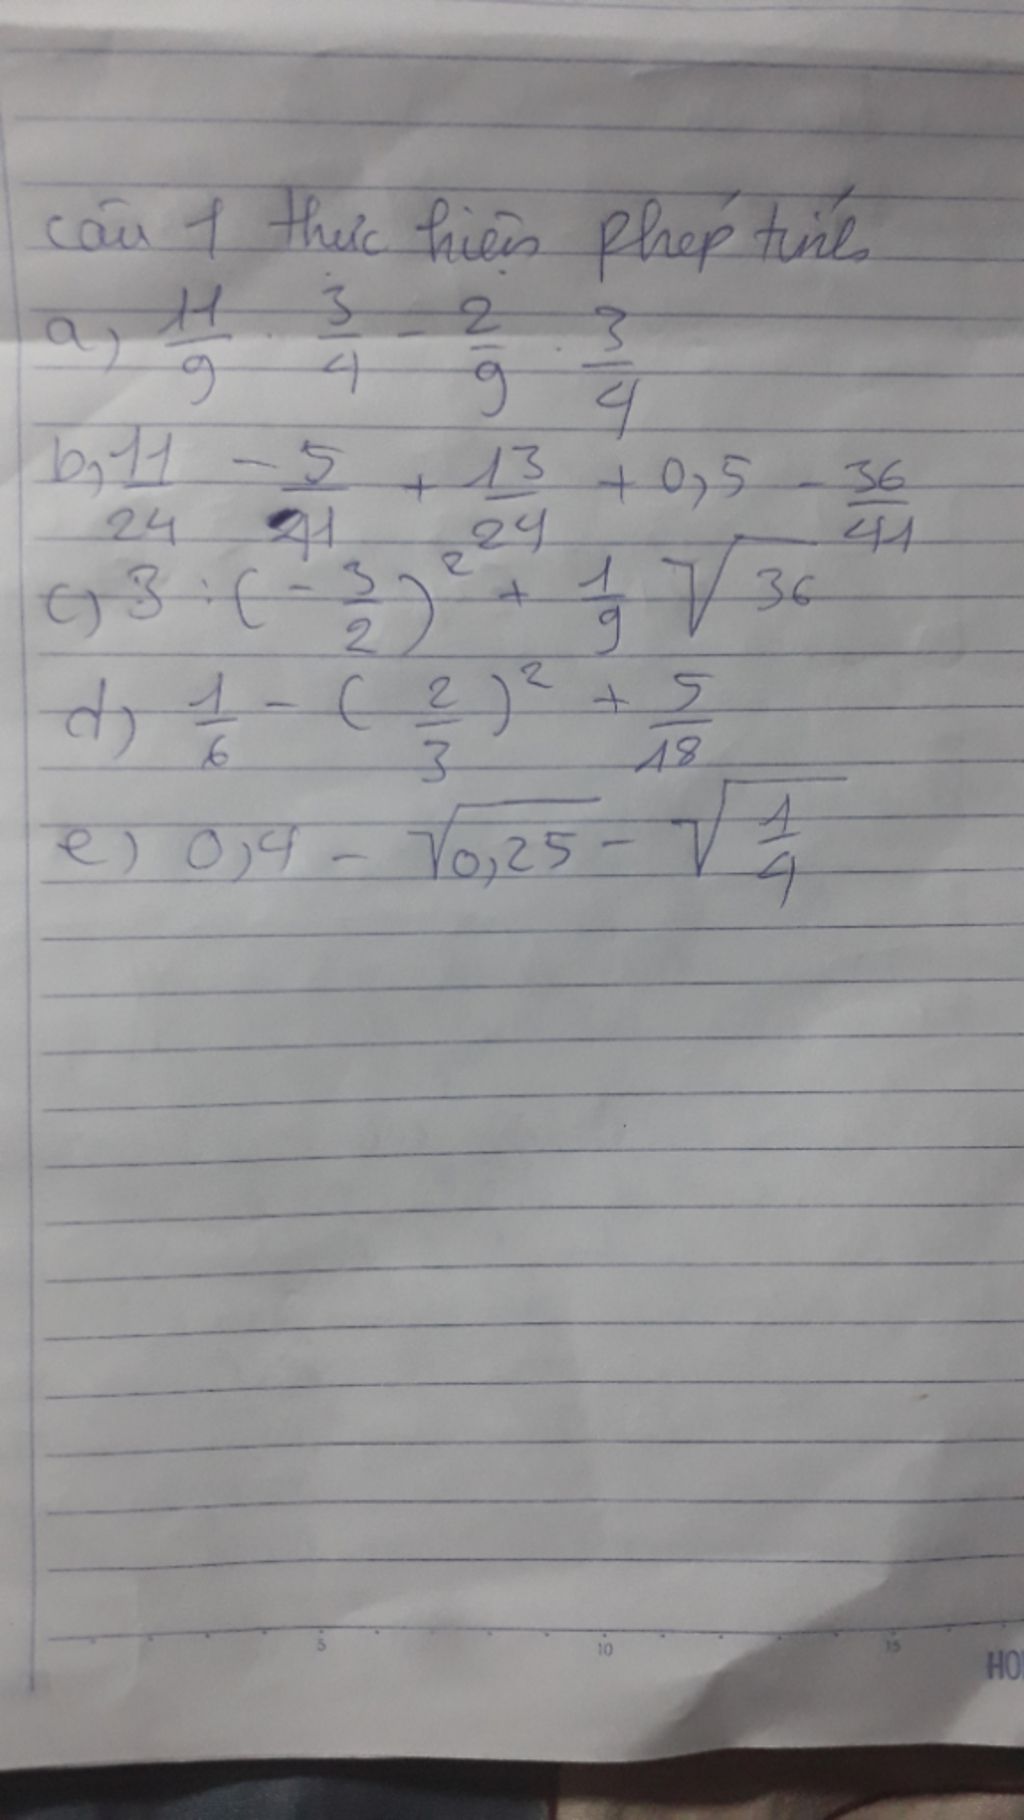 câu 1 thực hiện phép tính
a, 11/9 . 3/4 - 2/9 . 3/4
b, 11/24 - 5/41 + 13/24 + 0,5 - 36/41
c) 3 : (- 3/2)² + 1/9 √36
d) 1/6 - (2/3)² + 5/18
e) 0,4 - √0,25 - √1/4
5 10 15
HO